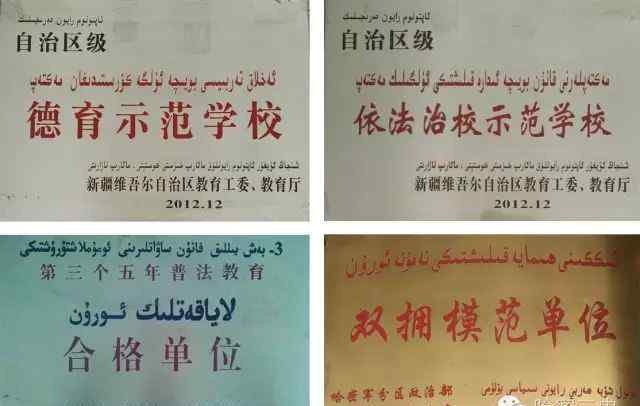 ئاپتونوم رايون دەرىجىلىك
自治区级
ئەخلاق تەربىيىسى بويىچە ئۈلگە كۆرسىتىدىغان مەكتەپ
德育示范学校
شىنجاڭ ئۇيغۇر ئاپتونوم رايونلۇق مائارىپ خىزمىتى كومىتېتى ، مائارىپ نازارىتى
新疆维吾尔自治区教育工委、教育厅
2012.12
ئاپتونوم رايون دەرىجىلىك
自治区级
مەكتەپلەرنى قانۇن بويىچە ئىدارە قىلىشتىكى ئۈلگىلىك مەكتەپ
依法治校示范学校
شىنجاڭ ئۇيغۇر ئاپتونوم رايونلۇق مائارىپ خىزمىتى كومىتېتى ، مائارىپ نازارىتى
新疆维吾尔自治区教育工委、教育厅
2012.12
3- بەش يىللىق قانۇن ساۋاتلىرىنى ئومۇملاشتۇرۇشتىكى
第三个五年普法教育
لاياقەتلىك ئورۇن
合格单位
ئىككىنى ھىمايە قىلىشتىكى نەمۇنە ئورۇن
双拥模范单位
ھەربىي رايونى سىياسىي بۆلۈمى
哈密军分区政治部